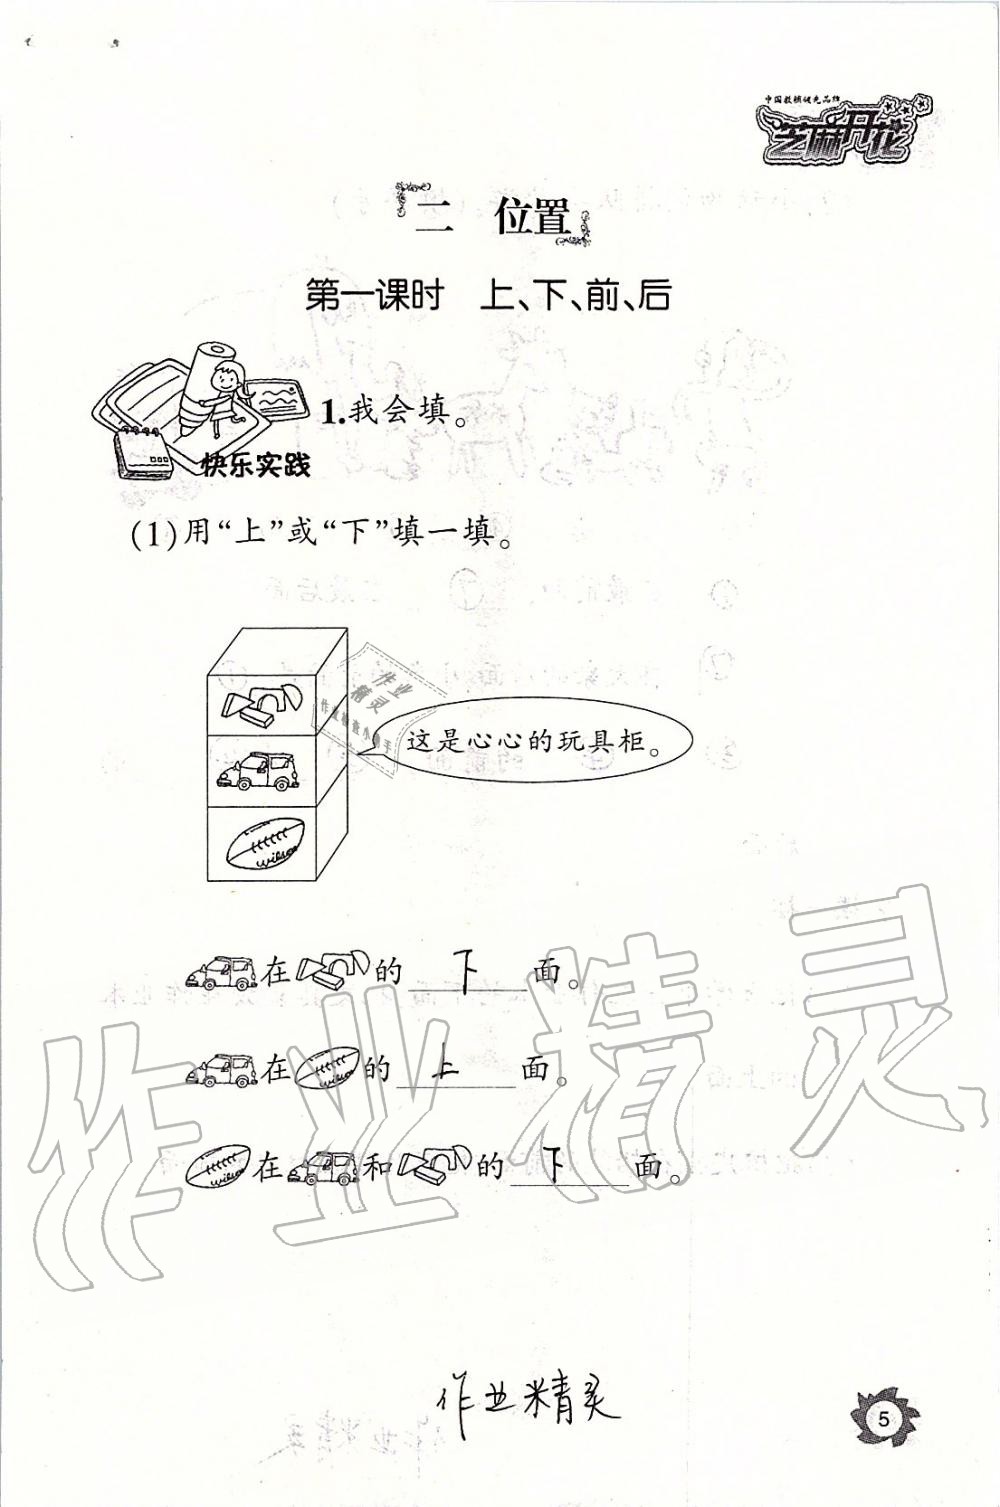 中国教辅优先品牌
芝麻开花
二 位置
第一课时 上、下、前、后
1.我会填。
快乐实践
(1)用“上”或“下”填一填。
作业
精灵
作业检查小助手
这是心心的玩具柜。
wilson
在 的 下 面。
在 的 上 面。
在 和 的 下 面。
作业精灵
作业精灵
5